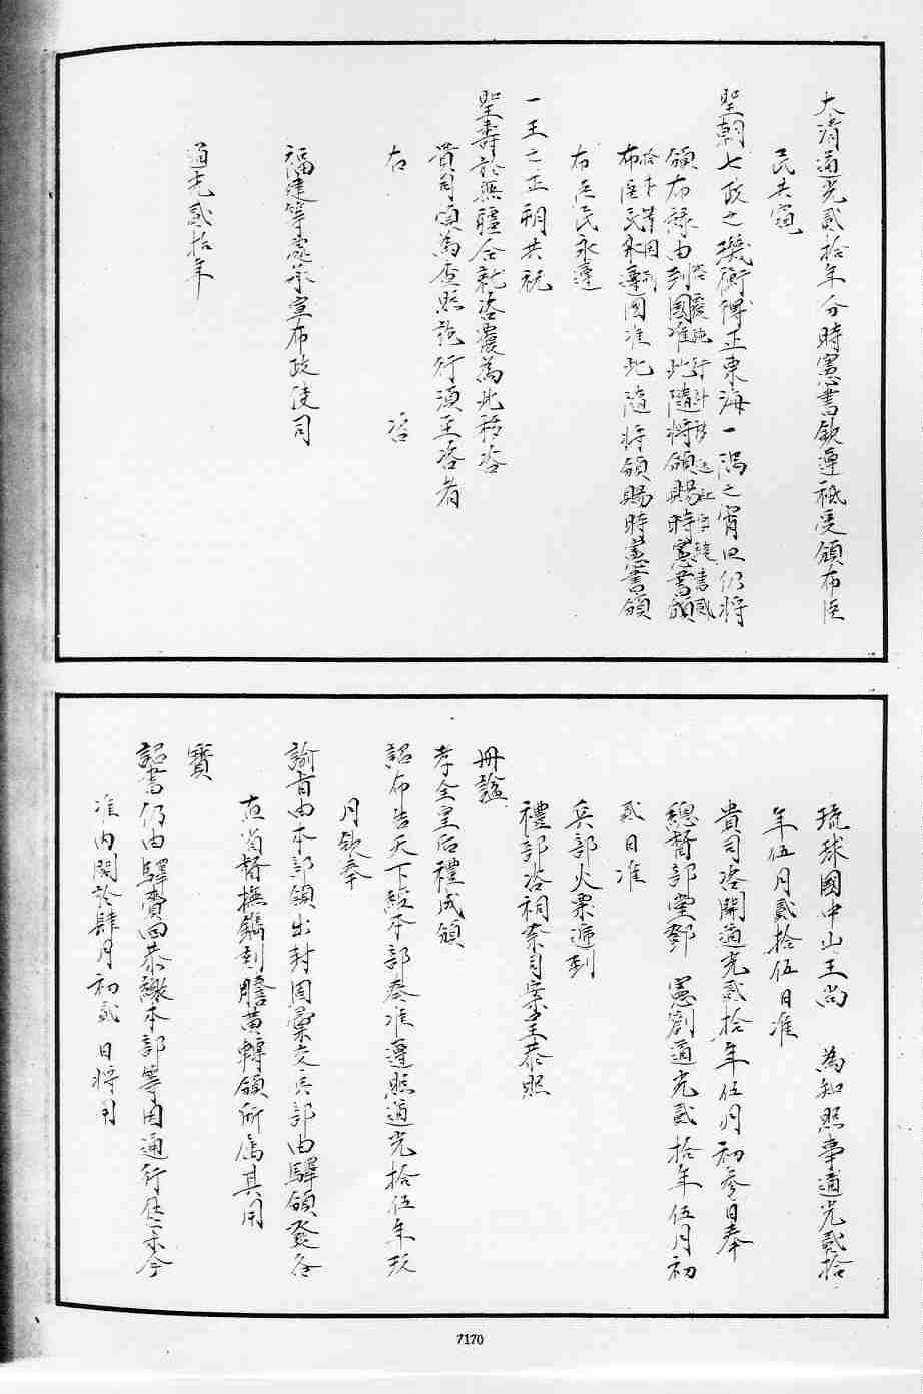 大清道光貳拾年分時憲書欽遵祗受頒布臣
民共寶
聖朝七政之璣衡得正東海一隅之宵旦仍將
頒布緣由到國准此隨將頒賜時憲書頒
布臣民永遵因准此隨將頒賜時憲書頒
布臣民永遵
一王之正朔共祝
聖壽於無疆合就咨覆為此移咨
貴司煩為查照施行須至咨者
右 咨
福建等處承宣布政使司
道光貳拾年
琉球國中山王尚 為知照事道光貳拾
年伍月貳拾伍日准
貴司咨開道光貳拾年伍月初參日奉
總督部堂鄧 憲劄道光貳拾年伍月初
貳日准
兵部火票遞到
禮部咨祠祭司案呈恭照
冊諡
孝全皇后禮成頒
詔布告天下經本部奏准遵照道光拾伍年玖
月欽奉
諭旨由本部領出封固彙交兵部由驛頒發各
直省督撫鐫刻謄黃轉頒所屬其用
寶
詔書仍由驛賫回恭繳本部等因通行在案今
准內閣於肆月初貳日將用
7170